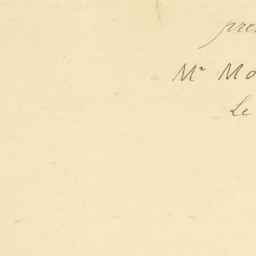 pre
Mr Mo
Le